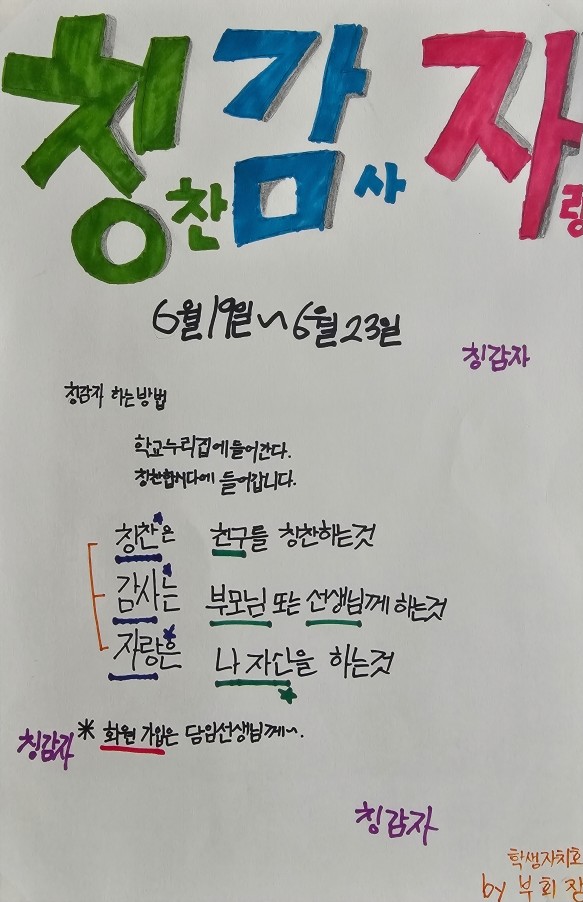 칭찬 감사 자랑
6월 19일 ~ 6월 23일
칭감자
칭감자 하는 방법
학교누리집에 들어간다.
칭찬합시다에 들어갑니다.
칭찬은 친구를 칭찬하는것
감사는 부모님 또는 선생님께 하는것
자랑은 나 자신을 하는것
칭감자
* 회원 가입은 담임선생님께~.
칭감자
학생자치회
by 부회장